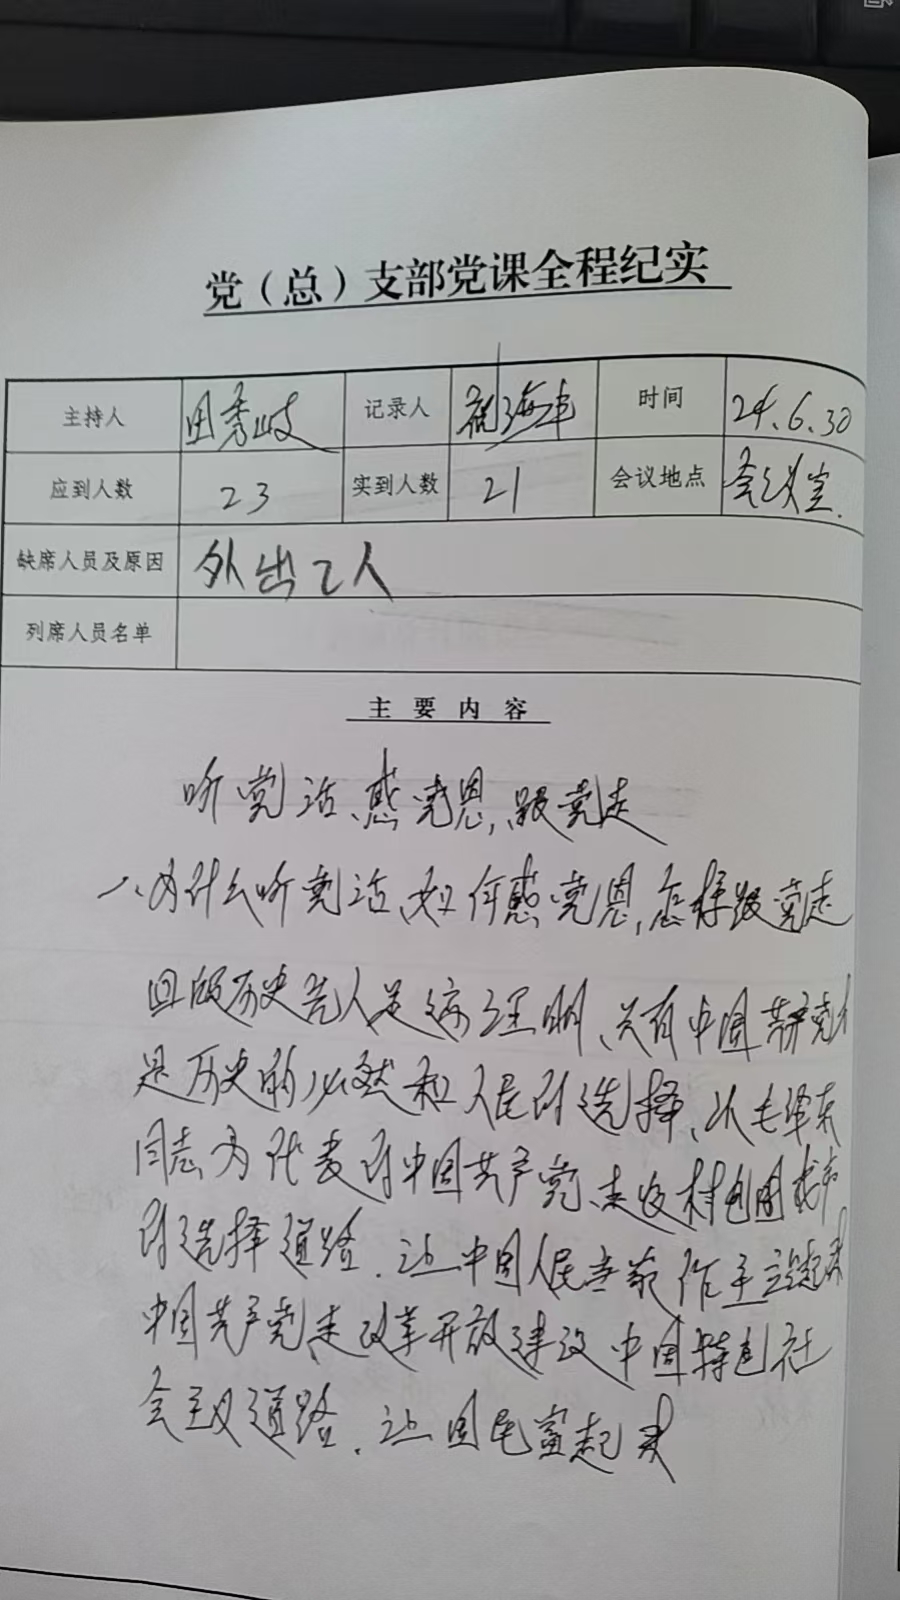 党（总）支部党课全程纪实
主持人 田秀岐 记录人 海 时间 24.6.30
应到人数 23 实到人数 21 会议地点 会议室.
缺席人员及原因 外出2人
列席人员名单
主要内容
听党话、感党恩,跟党走
一、为什么听党话、如何感党恩,怎样跟党走
回顾历史 证明、只有中国共产党
是历史的必然和人民的选择、以毛泽东
同志为代表的中国共产党,走农村包围城市
的选择道路.让中国人民当家作主站起来
中国共产党走改革开放建设中国特色社
会主义道路.让国民富起来